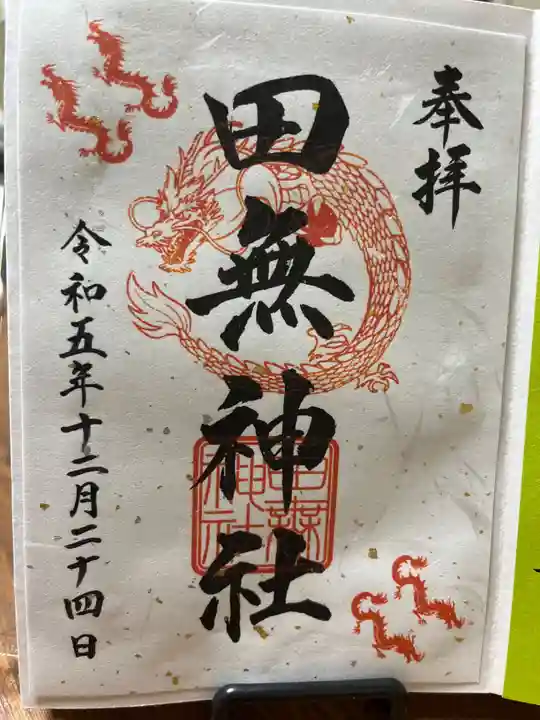 奉拝
田無神社
田無神社
令和五年十二月二十四日